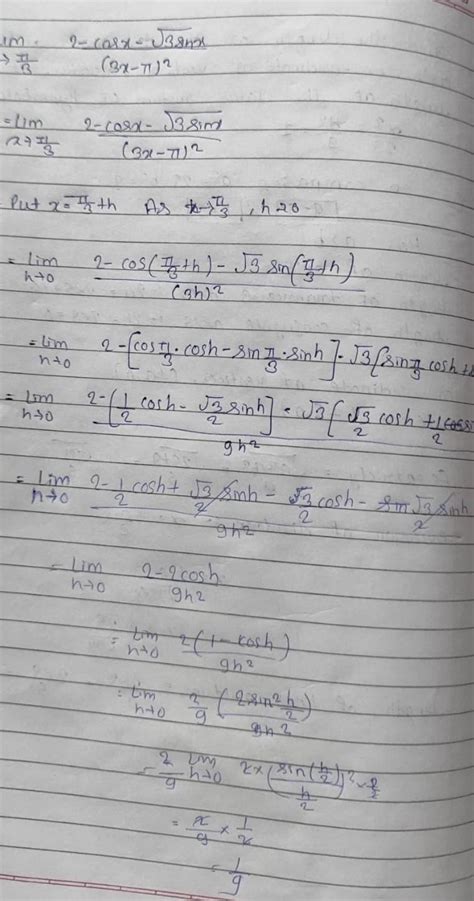 lim 2-cosx-√3sinx
→π/3 (3x-π)²
=lim 2-cosx-√3sinx
x→π/3 (3x-π)²
Put x=π/3+h As x→π/3, h→0
=lim 2-cos(π/3+h)-√3 sin(π/3+h)
h→0 (3h)²
=lim 2-[cosπ/3·cosh-sinπ/3·sinh]-√3[sinπ/3 cosh+
h→0
=lim 2-[1/2 cosh-√3/2 sinh]-√3[√3/2 cosh+1/2
h→0 9h²
=lim 2-1/2 cosh+√3/2 sinh-√3/2 cosh-√3/2 sinh
h→0 9h²
=lim 2-2cosh
h→0 9h²
=lim 2(1-cosh)
h→0 9h²
=lim 2/9 (2sin²h/2)
h→0 9h²
=2/9 lim h→0 2×(sin(h/2)/(h/2))²
=2/9×1/2
=1/9